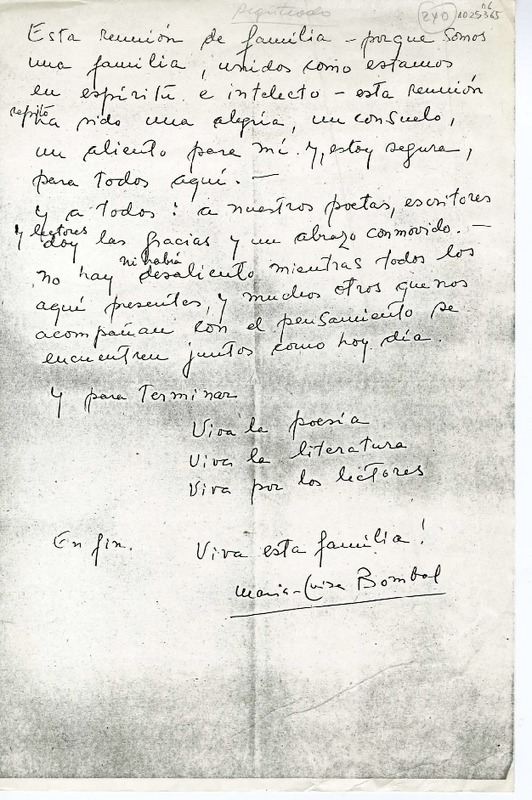 Registrado
240
1025365
Esta reunión de familia - porque somos
una familia, unidos como estamos
en espíritu e intelecto - esta reunión
repito
ha sido una alegría, un consuelo,
un aliento para mí. Y, estoy segura,
para todos aquí. —
Y a todos: a nuestros poetas, escritores
y lectores doy las gracias y un abrazo conmovido. —
ni habrá
no hay desaliento mientras todos los
aquí presentes, y muchos otros que nos
acompañan con el pensamiento se
encuentren juntos como hoy día.
Y para terminar
Viva la poesía
Viva la literatura
Viva por los lectores
En fin. Viva esta familia!
María-Luisa Bombal